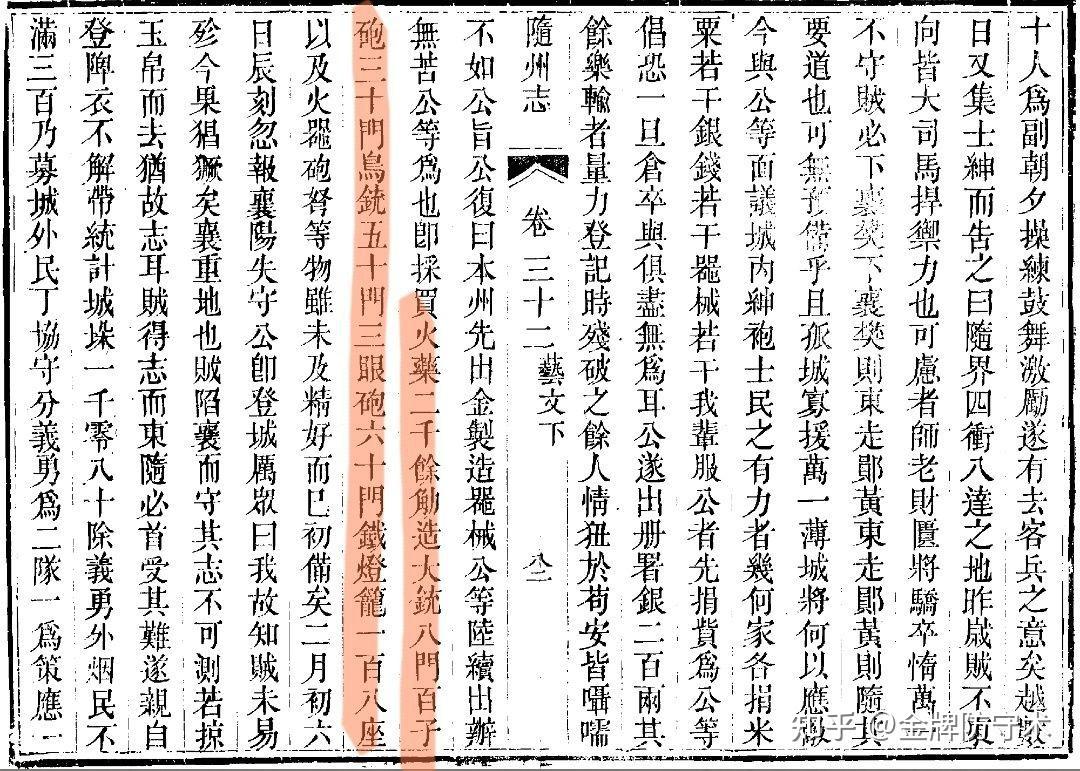 十人爲副朝夕操練鼓舞激勵遂有去客兵之意矣越數
日又集士紳而告之曰隨界四衝八達之地昨歲賊不東
向皆大司馬捍禦力也可慮者師老財匱將驕卒惰萬一
不守賊必下襄樊下襄樊則東走鄖黃東走鄖黃則隨其
要道也可無預備乎且孤城寡援萬一薄城將何以應
今與公等面議城內紳袍士民之有力者幾何家各捐米
粟若干銀錢若干器械若干我輩服公者先捐貲爲公等
倡恐一旦倉卒與俱盡無爲耳公遂出册署銀二百兩其
餘樂輸者量力登記時殘破之餘人情狃於苟安皆囁嚅
隨州志
卷三十二 藝文下
不如公旨公復曰本州先出金製造器械公等陸續出辦
無苦公等爲也卽採買火藥二千餘觔造大銃八門百子
砲三十門鳥銃五十門三眼砲六十門鐵燈籠一百八座
以及火器砲弩等物雖未及精好而已初備矣二月初六
日辰刻忽報襄陽失守公卽登城厲眾曰我故知賊未易
殄今果猖獗矣襄重地也賊陷襄而守其志不可測若掠
玉帛而去猶故志耳賊得志而東隨必首受其難遂親自
登陴衣不解帶統計城垛一千零八十除義勇外烟民不
滿三百乃募城外民丁協守分義勇爲二隊一爲策應一
知乎 @金牌陈守本